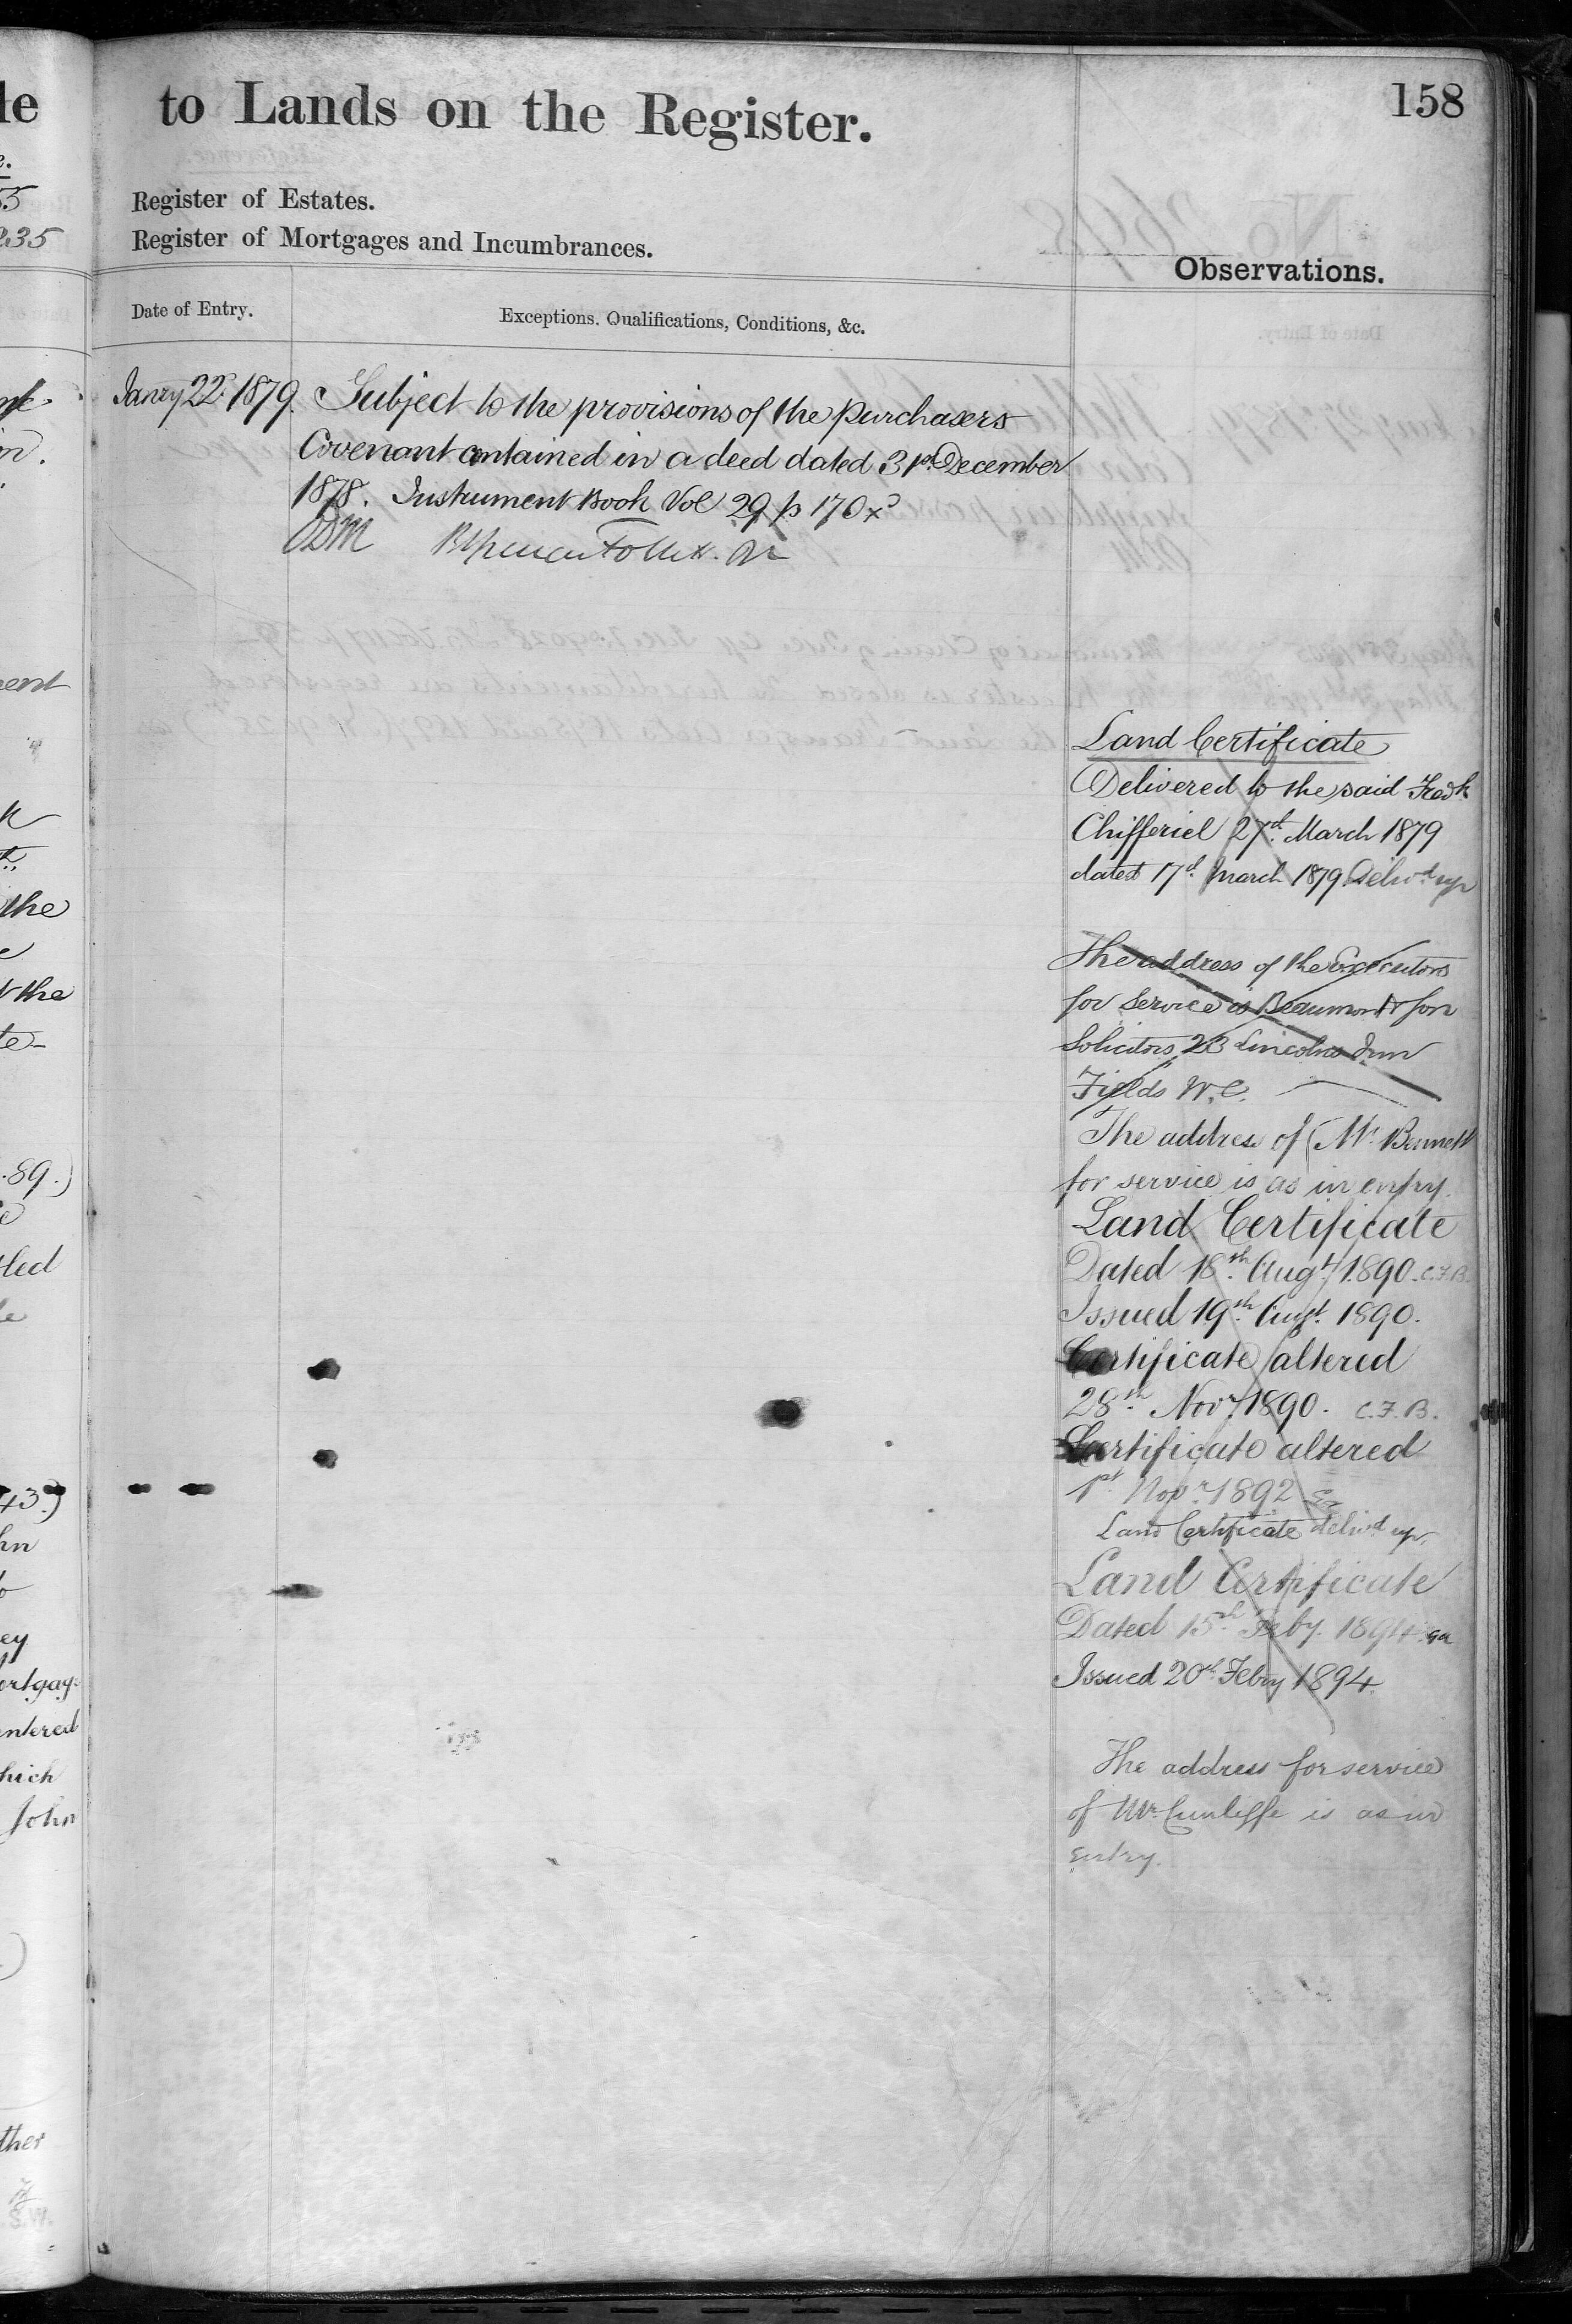 to Lands on the Register.
158
Register of Estates.
Register of Mortgages and Incumbrances.
Observations.
Date of Entry.
Exceptions. Qualifications, Conditions, &c.
Janry 22d 1879. Subject to the provisions of the purchasers
Covenant contained in a deed dated 31st December
1878. Instrument Book Vol 29 p 170
Land Certificate
Delivered to the said Fredk
Chifferiel 27th March 1879
dated 17th March 1879 Delivd up
The address of the Executors
for Service is Beaumont & Son
Solicitors 23 Lincolns Inn
Fields W.C.
The address of Mr. Bennett
for service is as in entry.
Land Certificate
Dated 18th Augt 1890. C.F.B.
Issued 19th Augt. 1890.
Certificate altered
28th Novr 1890. C.F.B.
Certificate altered
1st Novr 1892
Land Certificate delivd up.
Land Certificate
Dated 15th Feby. 1894
Issued 20th Febry 1894.
The address for service
of Mr. Cunliffe is as in
entry.
le
35
235
ent
the
the
te
.89.)
tled
43.)
hn
ey
ortgag
entered
hich
John
ther
S.W.